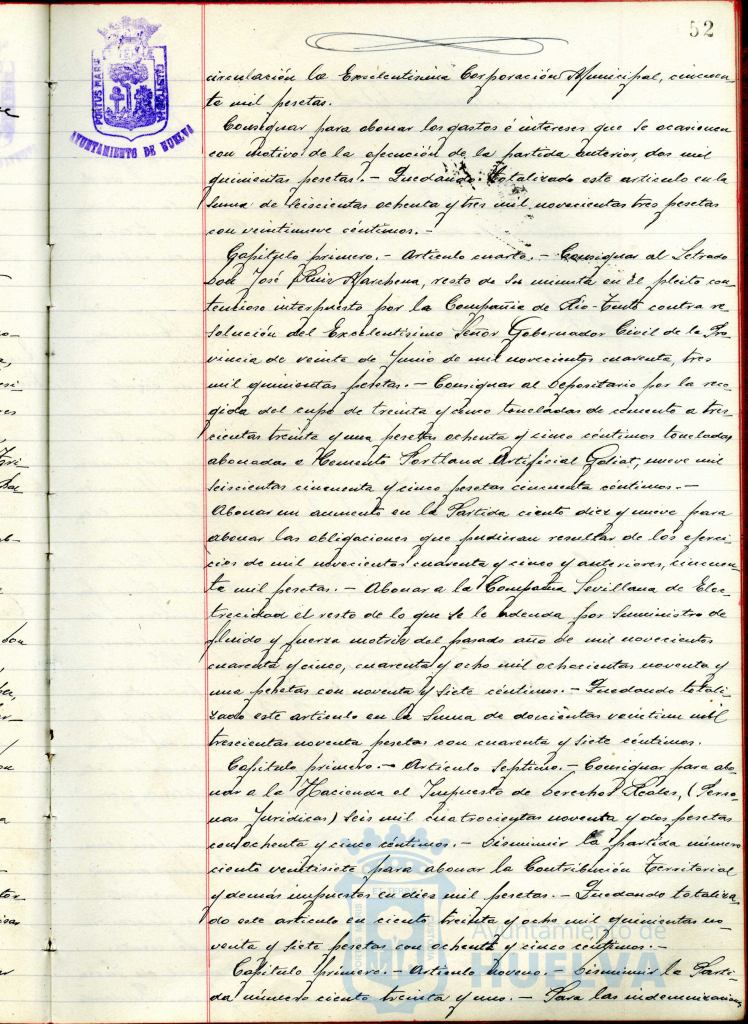 52
PORTUS MARIS ET TERRÆ CUSTODIA
AYUNTAMIENTO DE HUELVA
circulación la Excelentisima Corporación Municipal, cincuen-
ta mil pesetas.
Consignar para abonar los gastos é intereses que se ocasionen
con motivo de la ejecución de la partida anterior, dos mil
quinientas pesetas. — Quedando totalizado este articulo en la
suma de seiscientas ochenta y tres mil novecientas tres pesetas
con veintinueve céntimos. —
Capitulo primero. — Articulo cuarto. — Consignar al Letrado
Don José Ruiz Marchena, resto de su minuta en el pleito con-
tencioso interpuesto por la Compañia de Rio-Tinto contra re-
solución del Excelentisimo Señor Gobernador Civil de la Pro-
vincia de veinte de Junio de mil novecientos cuarenta, tres
mil quinientas pesetas. — Consignar al Depositario por la reco-
gida del cupo de treinta y cinco toneladas de cemento a tres-
cientas treinta y una pesetas ochenta y cinco céntimos tonelada
abonadas a Cemento Portland Artificial Goliat, nueve mil
seiscientas cincuenta y cinco pesetas cincuenta céntimos. —
Abonar un aumento en la Partida ciento diez y nueve para
abonar las obligaciones que pudieran resultar de los ejerci-
cios de mil novecientos cuarenta y cinco y anteriores, cincuen-
ta mil pesetas. — Abonar a la Compañia Sevillana de Elec-
trecidad el resto de lo que se le adeuda por suministro de
fluido y fuerza motriz del pasado año de mil novecientos
cuarenta y cinco, cuarenta y ocho mil ochocientas noventa y
una pesetas con noventa y siete céntimos. — Quedando totali-
zado este articulo en la suma de doscientas veintiun mil
trescientas noventa pesetas con cuarenta y siete céntimos.
Capitulo primero. — Articulo septimo. — Consignar para abo-
nar a la Hacienda el Impuesto de Derechos Reales, (Perso-
nas Juridicas) seis mil cuatrocientas noventa y dos pesetas
con ochenta y cinco céntimos. — Disminuir la partida número
ciento veintisiete para abonar la Contribución Territorial
y demás impuestos en diez mil pesetas. — Quedando totaliza-
do este articulo en ciento treinta y ocho mil quinientas no-
venta y siete pesetas con ochenta y cinco céntimos. —
Capitulo primero. — Articulo noveno. — Disminuir la Parti-
da número ciento treinta y uno. — Para las indemnizaciones
Ayuntamiento de
HUELVA